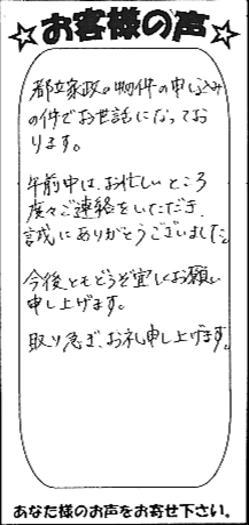 ☆お客様の声☆
都立家政の物件の申し込み
の件でお世話になってお
ります。
午前中は、お忙しいところ
度々ご連絡をいただき、
誠にありがとうございました。
今後ともどうぞ宜しくお願い
申し上げます。
取り急ぎ、お礼申し上げます。
あなた様のお声をお寄せ下さい。